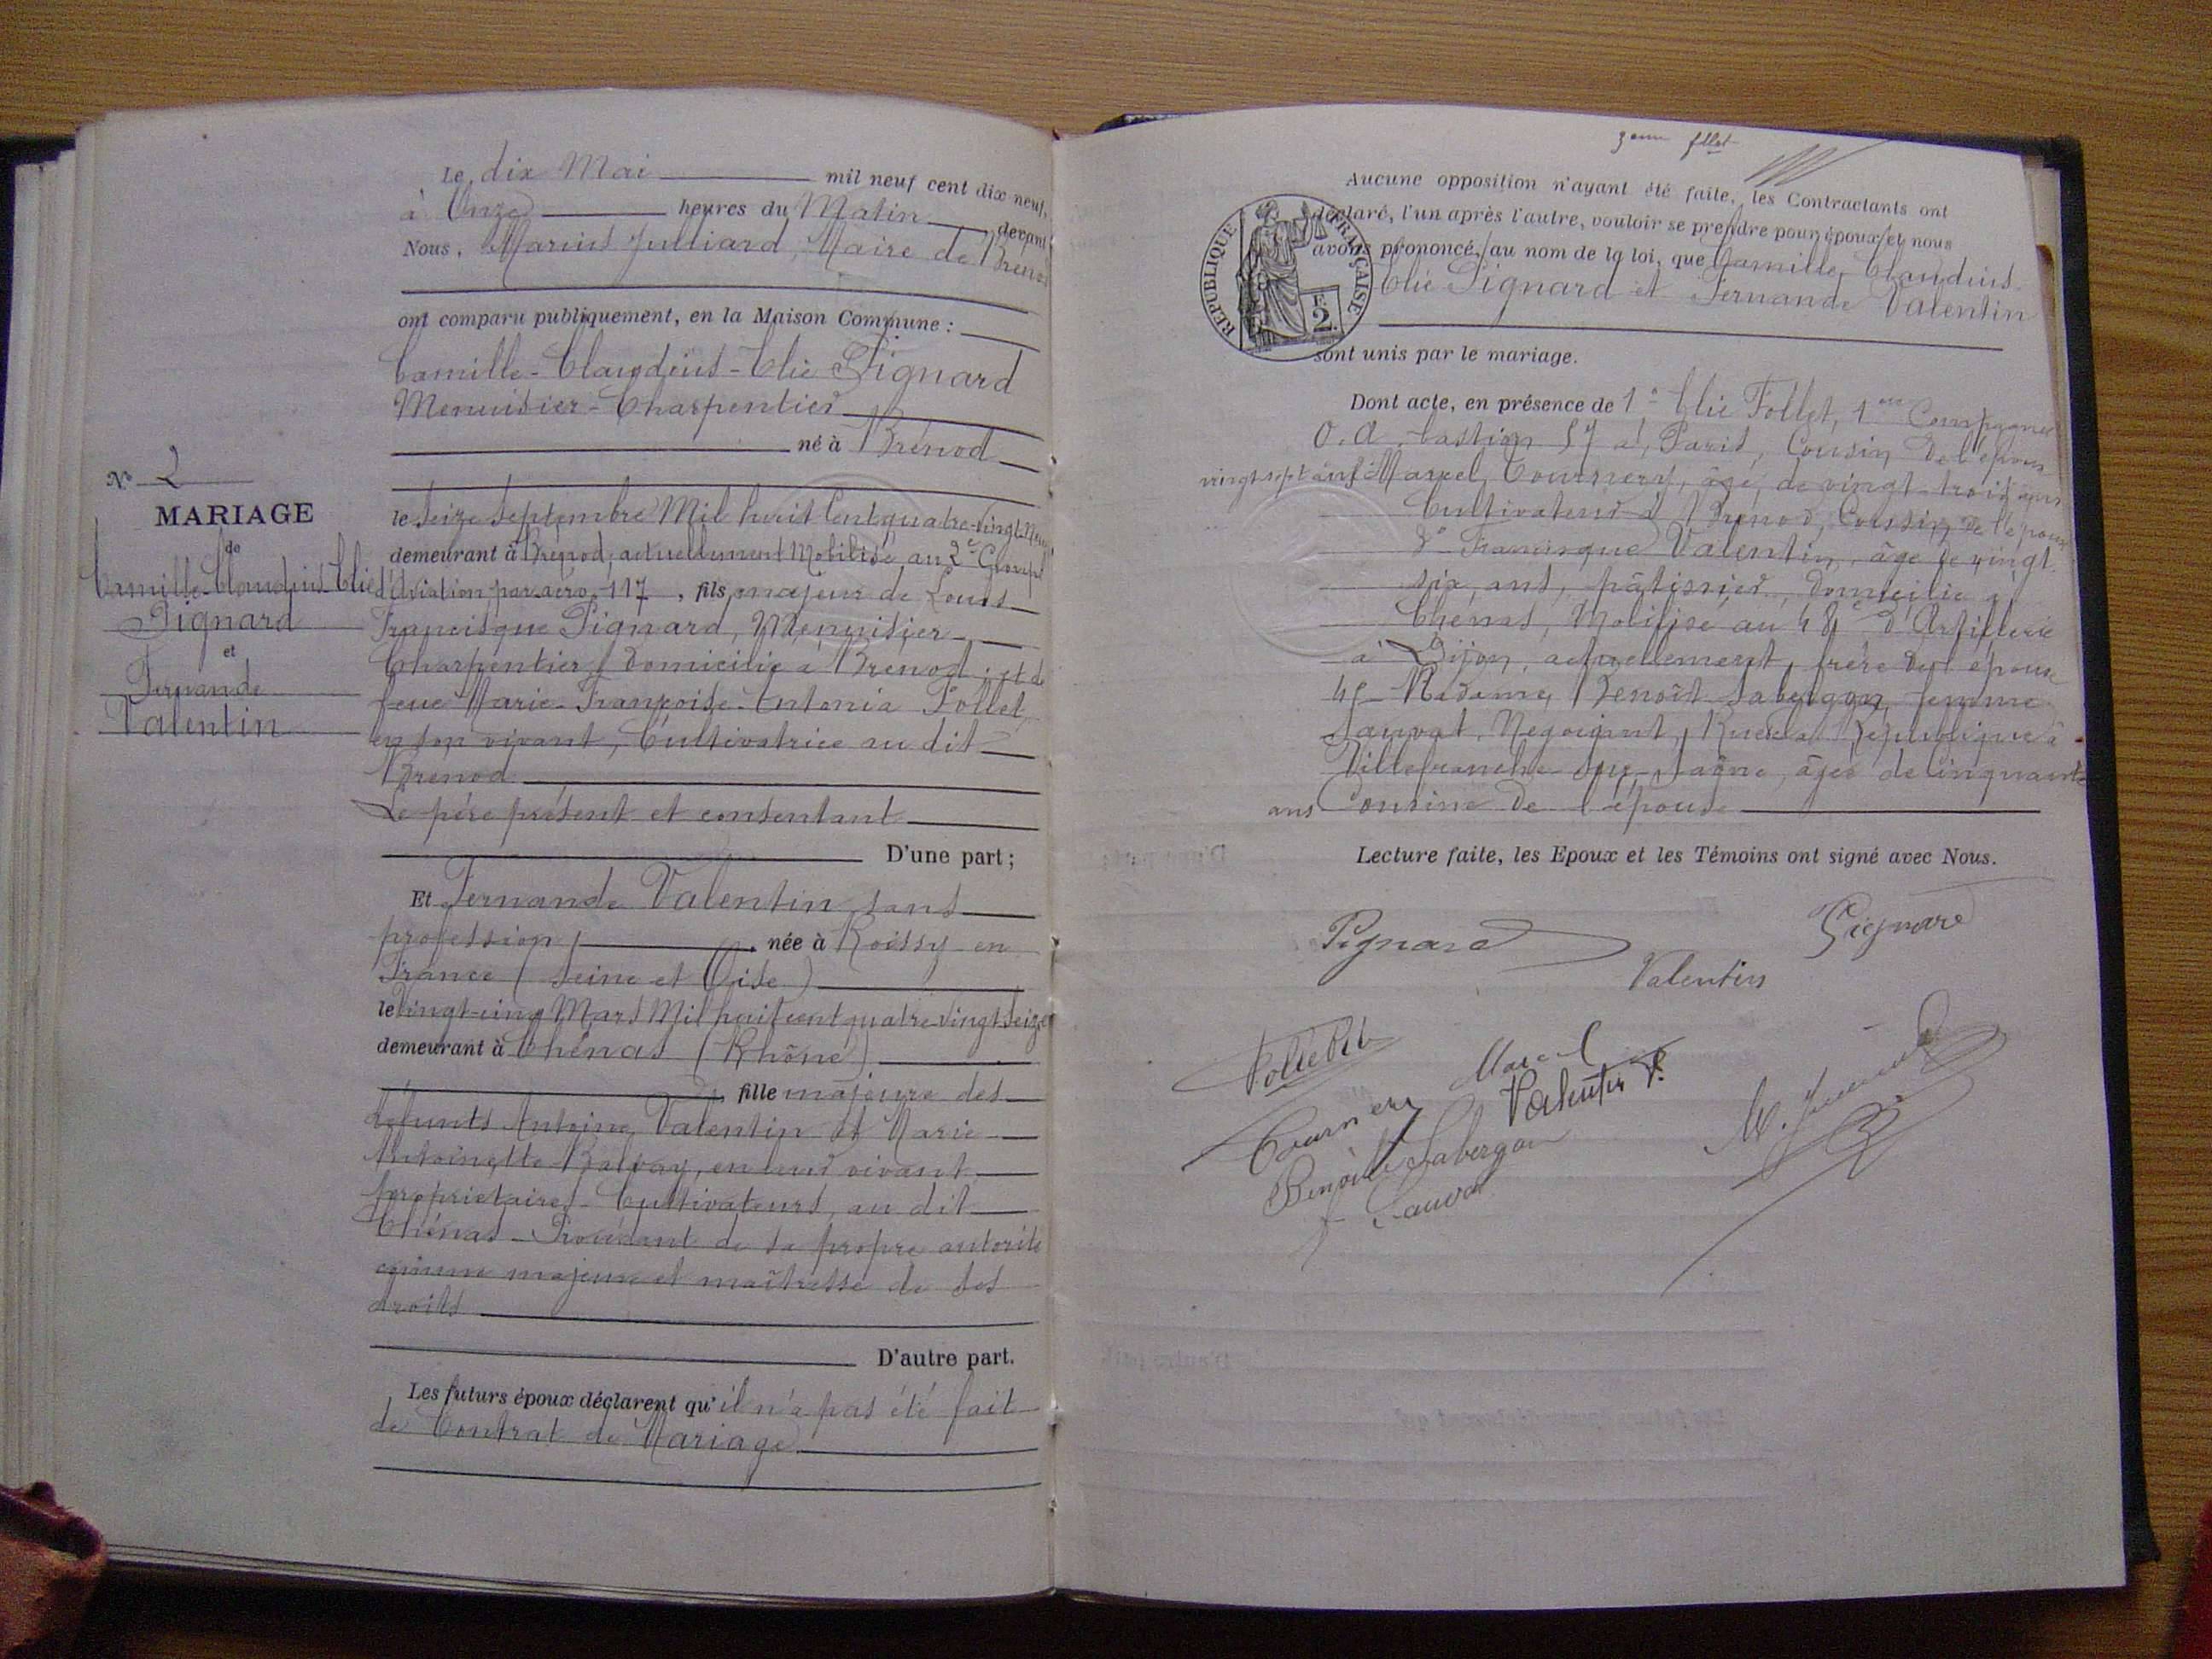 Le dix Mai mil neuf cent dix neuf,
à Onze heures du Matin, devant
Nous, Marius Julliard, Maire de Brénod
ont comparu publiquement, en la Maison Commune :
Camille-Claudius-Elie Pignard
Menuisier-Charpentier
né à Brénod
N° 2
MARIAGE
de
Camille-Claudius-Elie
Pignard
et
Fernande
Valentin
le seize Septembre Mil huit Cent quatre-vingt-neuf
demeurant à Brénod, actuellement Mobilisé au 2e Groupe
d'Aviation par aéro 117, fils majeur de Louis
Francisque Pignard, Menuisier
Charpentier, domicilié à Brénod ; et de
feue Marie-Françoise-Antonia Follet,
en son vivant, Cultivatrice au dit
Brénod
Le père présent et consentant
D'une part ;
Et Fernande Valentin, sans
profession, née à Roissy en
France (Seine et Oise)
le Vingt-cinq Mars Mil huit cent quatre-vingt-seize
demeurant à Chénas (Rhône)
, fille majeure des
défunts Antoine Valentin et Marie
Antoinette, en leur vivant
propriétaires-Cultivateurs, au dit
Chénas - de sa propre autorité
comme majeure et maîtresse de ses
droits
D'autre part.
Les futurs époux déclarent qu'il n'a pas été fait
de Contrat de Mariage
3eme fllet
Aucune opposition n'ayant été faite, les Contractants ont
déclaré, l'un après l'autre, vouloir se prendre pour époux, et nous
avons prononcé, au nom de la loi, que Camille Claudius
Elie Pignard et Fernande Valentin
RÉPUBLIQUE FRANÇAISE
F. 2.
sont unis par le mariage.
Dont acte, en présence de 1° Elie Follet, 1ere Compagnie
O.A. bastion 57 à Paris, Cousin de l'époux
vingt sept ans Marcel Tournery, âgé de vingt-trois ans
Cultivateur à Brénod, Cousin de l'époux
3° Francisque Valentin, âgé de vingt
six ans, pâtissier, domicilié à
Chénas, Mobilisé au 48e d'Artillerie
à Dijon, actuellement, frère de l'épouse
4° Madame Benoît Labergon, femme
Sauvat, Négociant, Rue de la République à
Villefranche-sur-Saône, âgée de Cinquante
ans Cousine de l'épouse
Lecture faite, les Epoux et les Témoins ont signé avec Nous.
Pignard
Pignard
Valentin
Marcel
Tournery
Valentin F.
Benoît Labergon
f. Sauvat